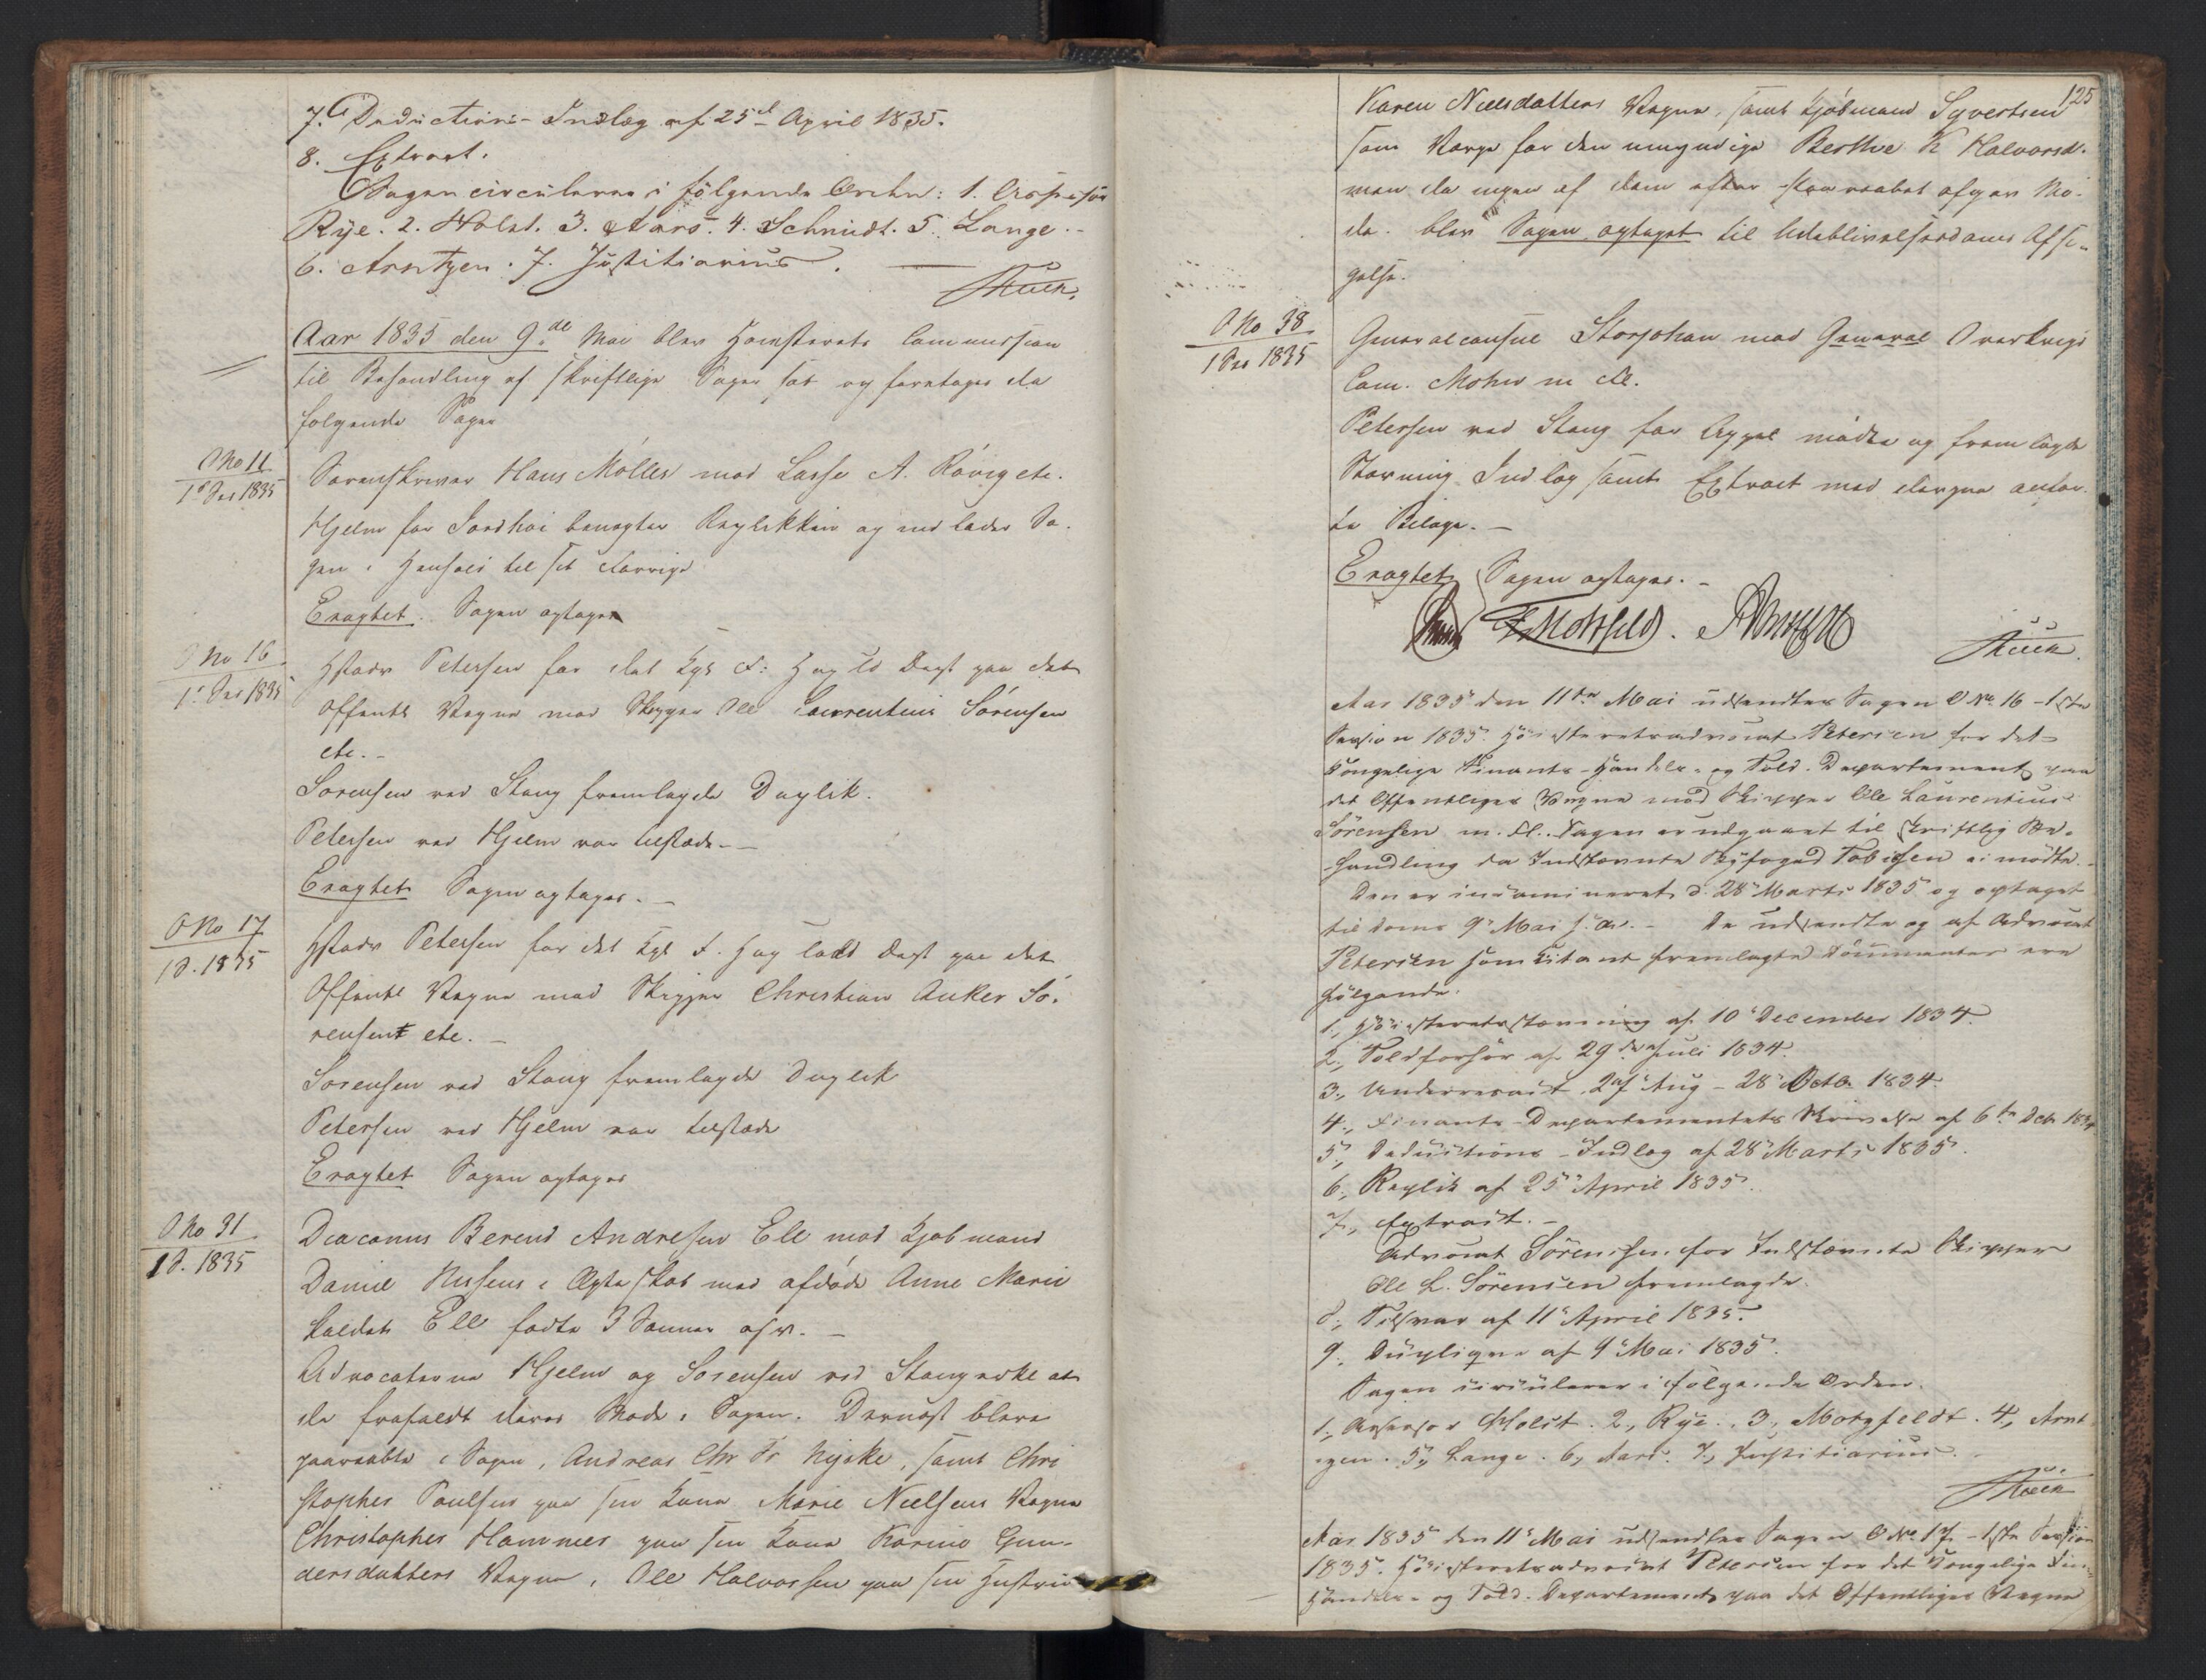 7. Deductions-Indlæg af 25de April 1835.
8. Extract.
Sagen circulerer i følgende Orden: 1. Assessor
Rye. 2. Holst. 3. Aars. 4. Schmidt. 5. Lange.
6. Arntzen. 7. Justitiarius.
Aar 1835 den 9de Mai blev Høiesterets Commission
til Behandling af skriftlige Sager sat og foretoges da
følgende Sager
O No 11
1ste Ses 1835
Sorenskriver Hans Möller mod Lasse A. Rövig etc.
Hjelm for benægter Replikken og indlader Sa-
gen i Henhold til sit Forrige
Eragtet. Sagen optages
O No 16
1. Ses 1835
Hstadv Petersen for det Kgl F: H og To Dept paa det
Offentl Vegne mod Skipper Ole Laurentius Sörensen
etc.-
Sorensen ved Stang fremlagde Duplik.
Petersen ved Hjelm var tilstede.-
Eragtet Sagen optages.-
O No 17
1 S. 1835
Hstadv Petersen for det Kgl F. H og Told Dept paa det
Offentl Vegne mod Skipper Christian Anker Sö-
rensen etc.-
Sorensen ved Stang fremlagde Duplik
Petersen ved Hjelm var tilstede
Eragtet Sagen optages
O No 31
1 S. 1835
Diaconus Berend Andresen Ell mod Kjøbmand
Daniel Nissens i Ægteskab med afdøde Anne Marie
kaldet Ell fødte 3 Sønner osv.-
Advocaterne Hjelm og Sorensen ved Stang at
de frafaldt deres Møde i Sagen. Dernæst bleve
paaraabte i Sagen, Andreas Chr Fr Nyske, samt Chri
stopher Poulsen paa sin Kone Marie Nielsens Vegne
Christopher Hammer paa sin Kone Karine Gun-
dersdatters Vegne, Ole Halvorsen paa sin Hustru
125
Karen Nielsdatters Vegne, samt Kjøbmand Syvertsen
som Værge for den umyndige Berthe K Halvorsd.
men da ingen af dem efter Paaraabet afgav Mø-
de. blev Sagen optaget til Udeblivelsesdoms Afsi-
gelse.
O No 38
1 Ses 1835
Generalconsul Storjohan mod General Overkrigs
Com. Mohr m fl.
Petersen ved Stang for Appel mødte og fremlagde
Stævning Indlæg samt Extract med dertil anfør-
te Bilage.-
Eragtet Sagen optages.-
Motzfeldt.
Aar 1835 den 11te Mai udsendtes Sagen O No 16 - 1ste
Session 1835. Höiesteretsadvocat Petersen for det
Kongelige Finants- Handels- og Told-Departement paa
det Offentliges Vegne mod Skipper Ole Laurentius
Sörensen m. Fl. Sagen er udgaaet til skriftlig Be-
handling da Indstævnte Byfoged Tobiesen ei mødte.-
Den er incamineret d. 28de Marts 1835 og optaget
til Doms 9de Mai s. A.- De udsendte og af Advocat
Petersen som Citant fremlagte Documenter ere
følgende:
1., Höiesteretsstævning af 10de December 1834.
2., Toldforhör af 29de Juli 1834.
3., Underretsact 2 Aug - 28 Octb. 1834.
4., Finants-Departementets Skrivelse af 6te Dcb 1834
5., Deductions-Indlæg af 28de Marts 1835.
6., Replik af 25de April 1835.
7., Extract.-
Advocat Sörensen for Indstævnte Skipper
Ole L. Sörensen fremlagde.
8., Tilsvar af 11te April 1835.
9., Duplique af 9de Mai 1835.
Sagen circulerer i følgende Orden.
1., Assessor Holst. 2., Rye. 3., Motzfeldt. 4., Arnt
zen. 5., Lange. 6., Aars. 7., Justitiarius.
Aar 1835 den 11te Mai udsendtes Sagen O No 17 - 1ste Session
1835. Höiesteretsadvocat Petersen for det Kongelige Fin-
Handels- og Told-Departement paa det Offentliges Vegne